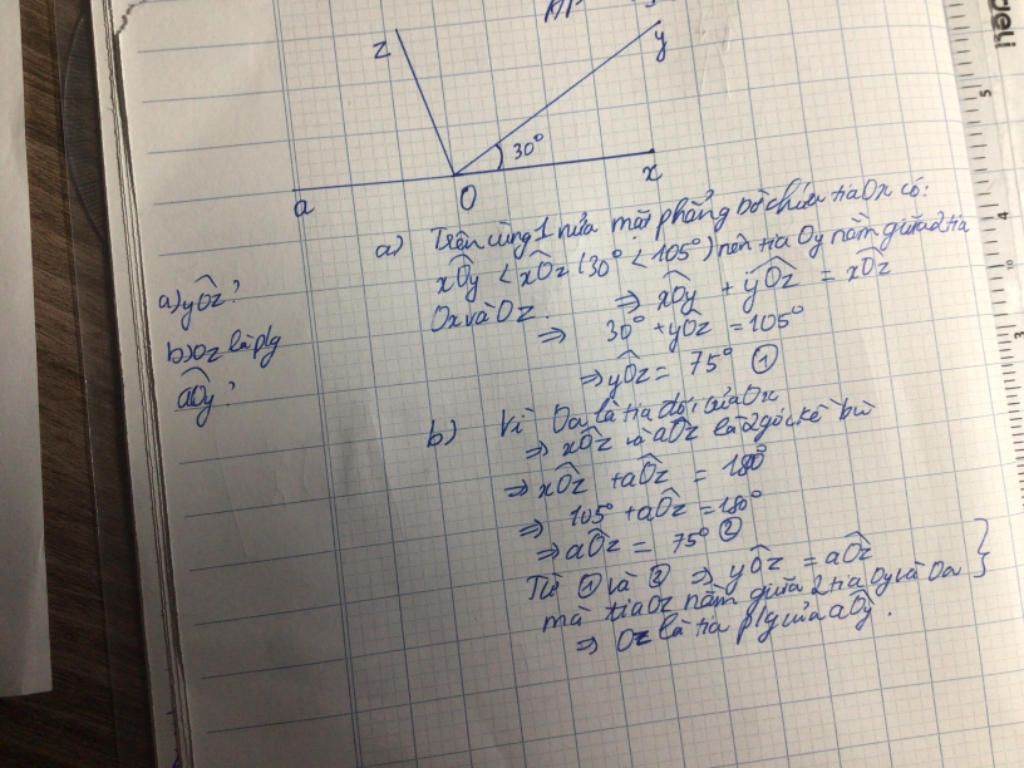 deli
5
4
z
y
30°
x
O
a
a) Trên cùng 1 nửa mặt phẳng bờ chứa tia Ox có:
xOy < xOz (30° < 105°) nên tia Oy nằm giữa 2 tia
Ox và Oz.
⇒ xOy + yOz = xOz
⇒ 30° + yOz = 105°
⇒ yOz = 75° ①
a) yOz?
b) Oz là p/g
aOy?
b) Vì Oa là tia đối của Ox
⇒ xOz và aOz là 2 góc kề bù
⇒ xOz + aOz = 180°
⇒ 105° + aOz = 180°
⇒ aOz = 75° ②
Từ ① và ② ⇒ yOz = aOz
mà tia Oz nằm giữa 2 tia Oy và Oa }
⇒ Oz là tia p/g của aOy.